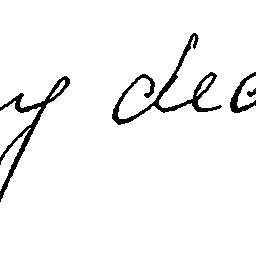 y dea